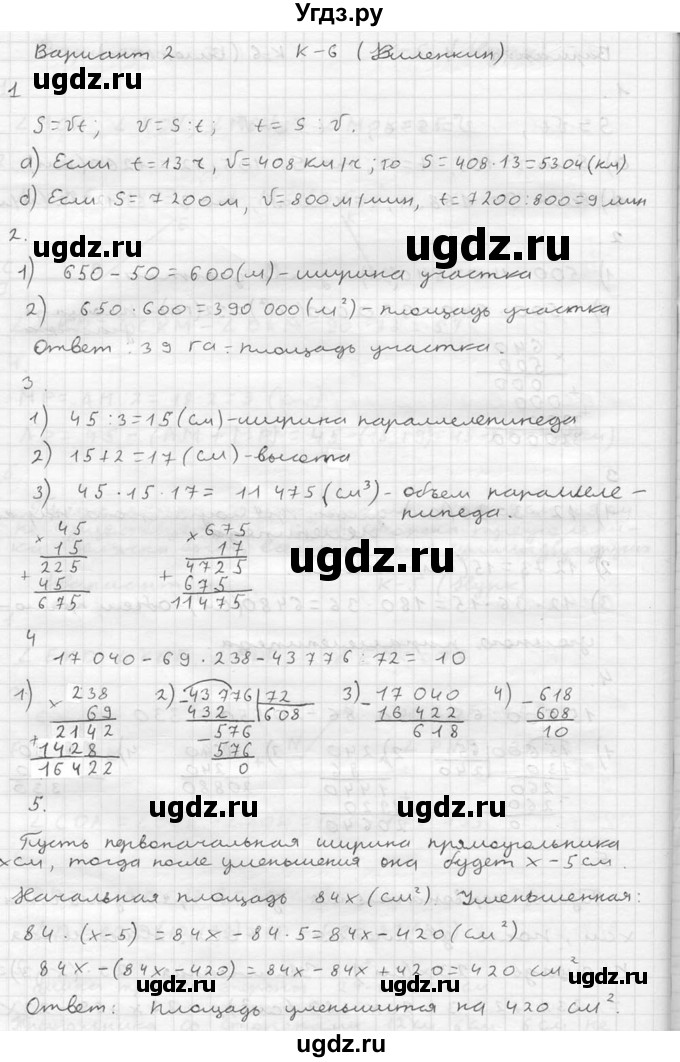 Угдз.ру
Вариант 2 К-6 (Виленкин)
ugdz.ru ugdz.ru
1
S=Vt; V=S:t; t=S:V.
а) Если t=13ч, V=408 км/ч; то S=408·13=5304(км)
б) Если S=7200м, V=800м/мин, t=7200:800=9 мин
ugdz.ru
2.
1) 650-50=600(м)-ширина участка
2) 650·600=390 000(м²)-площадь участка
Ответ: 39 га-площадь участка.
ugdz.ru ugdz.ru
3
1) 45:3=15(см)-ширина параллелепипеда
2) 15+2=17(см)-высота
3) 45·15·17= 11 475(см³)-объем параллеле-
пипеда.
× 45 × 675
15 17
225 4725
+ 45 + 675
675 11475
ugdz.ru
4
17 040-69·238-43776:72=10
1) × 238 2) -43776|72 3) -17 040 4) -618
69 432 608 16 422 608
2142 -576 618 10
+ 1428 576
16422 0
ugdz.ru ugdz.ru
5.
Пусть первоначальная ширина прямоугольника
x см, тогда после уменьшения она будет x-5см.
ugdz.ru ugdz.ru
Начальная площадь 84x(см²) Уменьшенная:
84·(x-5)=84x-84·5=84x-420(см²)
84x-(84x-420)=84x-84x+420=420 см²
Ответ: площадь уменьшится на 420 см².
ugdz.ru ugdz.ru
ugdz.ru